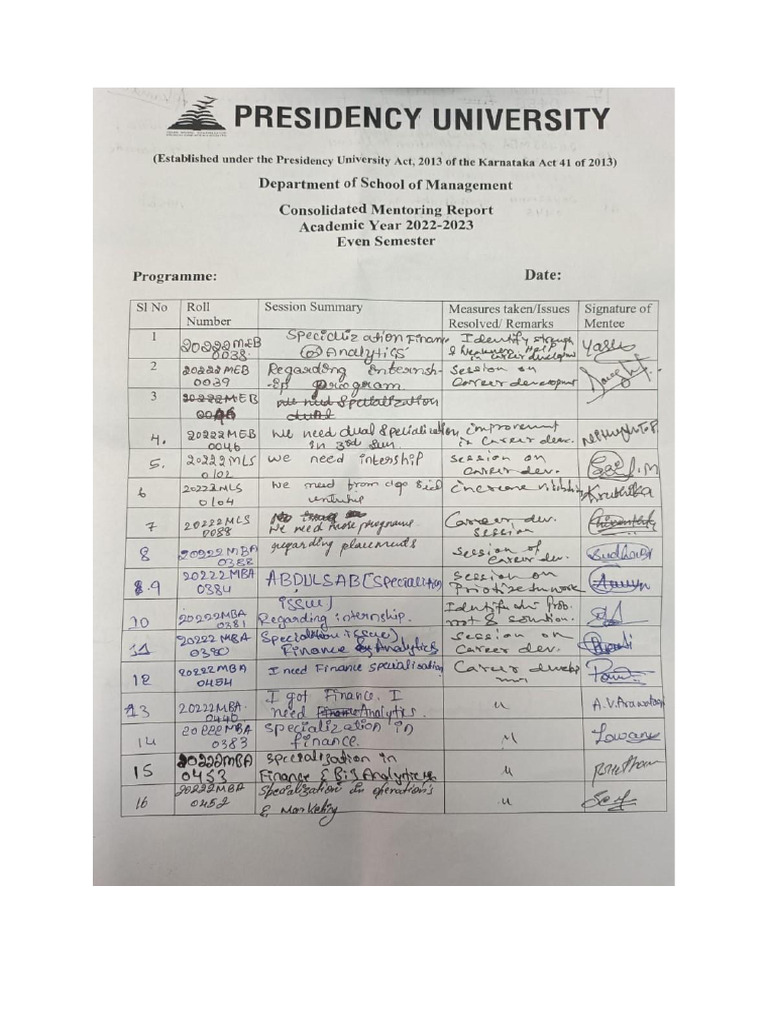 PRESIDENCY UNIVERSITY
(Established under the Presidency University Act, 2013 of the Karnataka Act 41 of 2013)
Department of School of Management
Consolidated Mentoring Report
Academic Year 2022-2023
Even Semester
Programme: Date:
Sl No Roll Number Session Summary Measures taken/Issues Resolved/ Remarks Signature of Mentee
1 20222MEB 0038 Specialization Finance Identify strength
(or) Analytics & Weakness in career development Yashu
2 20222MEB 0039 Regarding Internsh-
-ip program session on career development
3 20222MEB We need Specialization dual
4. 20222MEB 0046 We need dual Specialization in 3rd Sem. improvement in career dev.
5. 20222MLS 0102 we need intership session on career dev.
6 20222MLS 0104 we need from clg side increase visibility Kruthika
7 20222MLS 0088 We need more programs. Career dev. session
8 20222MBA 0388 regarding placements session of career dev. Sudharg
9 20222MBA 0384 ABDULSAB (Specialization issue) session on Priotize the work
10 20222MBA 0381 Regarding internship. Identify the prob. not & solution.
11 20222MBA 0380 Specialization issue) Finance & Analytics session on career dev.
12 20222MBA 0454 I need Finance specialisation Career develop
13 20222MBA 0440 I got Finance. I need Analytics. " A.V.Aravatagi
14 20222MBA 0383 Specialization in finance. "
15 20222MBA 0453 specialisation in Finance & Bis Analytics "
16 20222MBA 0452 specialization in operations & Marketing "